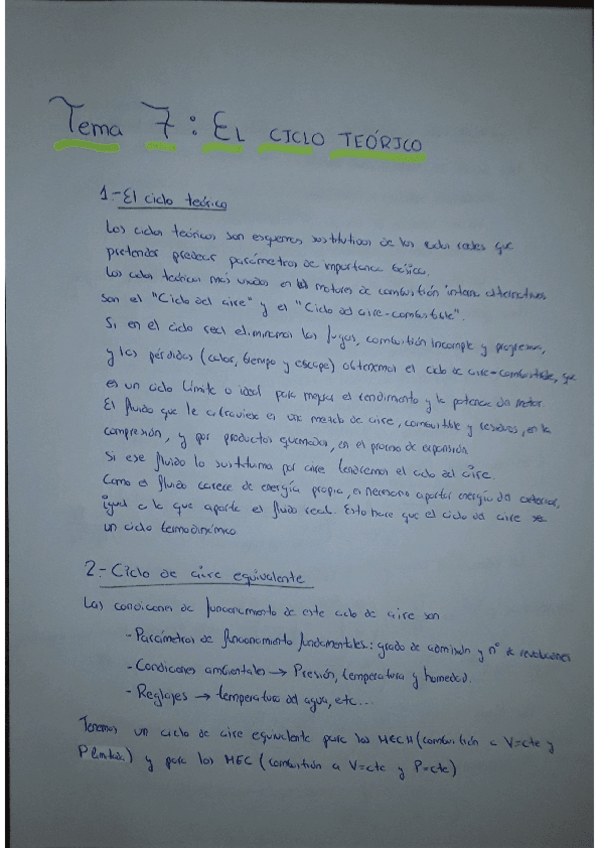 Tema 7: EL CICLO TEÓRICO
1.- El ciclo teórico
Los ciclos teóricos son esquemas sustitutivos de los ciclos reales que
pretenden predecir parámetros de importancia básica.
Los ciclos teóricos más usados en los motores de combustión interna alternativos
son el "Ciclo del aire" y el "Ciclo del aire-combustible".
Si en el ciclo real eliminamos las fugas, combustión incompleta y progresiva,
y las pérdidas (calor, tiempo y escape) obtenemos el ciclo de aire-combustible, que
es un ciclo límite o ideal para mejorar el rendimiento y la potencia del motor.
El fluido que le atraviesa es una mezcla de aire, combustible y residuos, en la
compresión, y por productos quemados, en el proceso de expansión.
Si ese fluido lo sustituimos por aire tenemos el ciclo del aire.
Como el fluido carece de energía propia, es necesario aportar energía del exterior,
igual a la que aporta el fluido real. Esto hace que el ciclo del aire sea
un ciclo termodinámico
2.- Ciclo de aire equivalente
Las condiciones de funcionamiento de este ciclo de aire son
- Parámetros de funcionamiento fundamentales: grado de admisión y nº de revoluciones
- Condiciones ambientales → Presión, temperatura y humedad.
- Reglajes → temperatura del agua, etc...
Tenemos un ciclo de aire equivalente para los MECH (combustión a V=cte y
P limitada) y para los MEC (combustión a V=cte y P=cte)